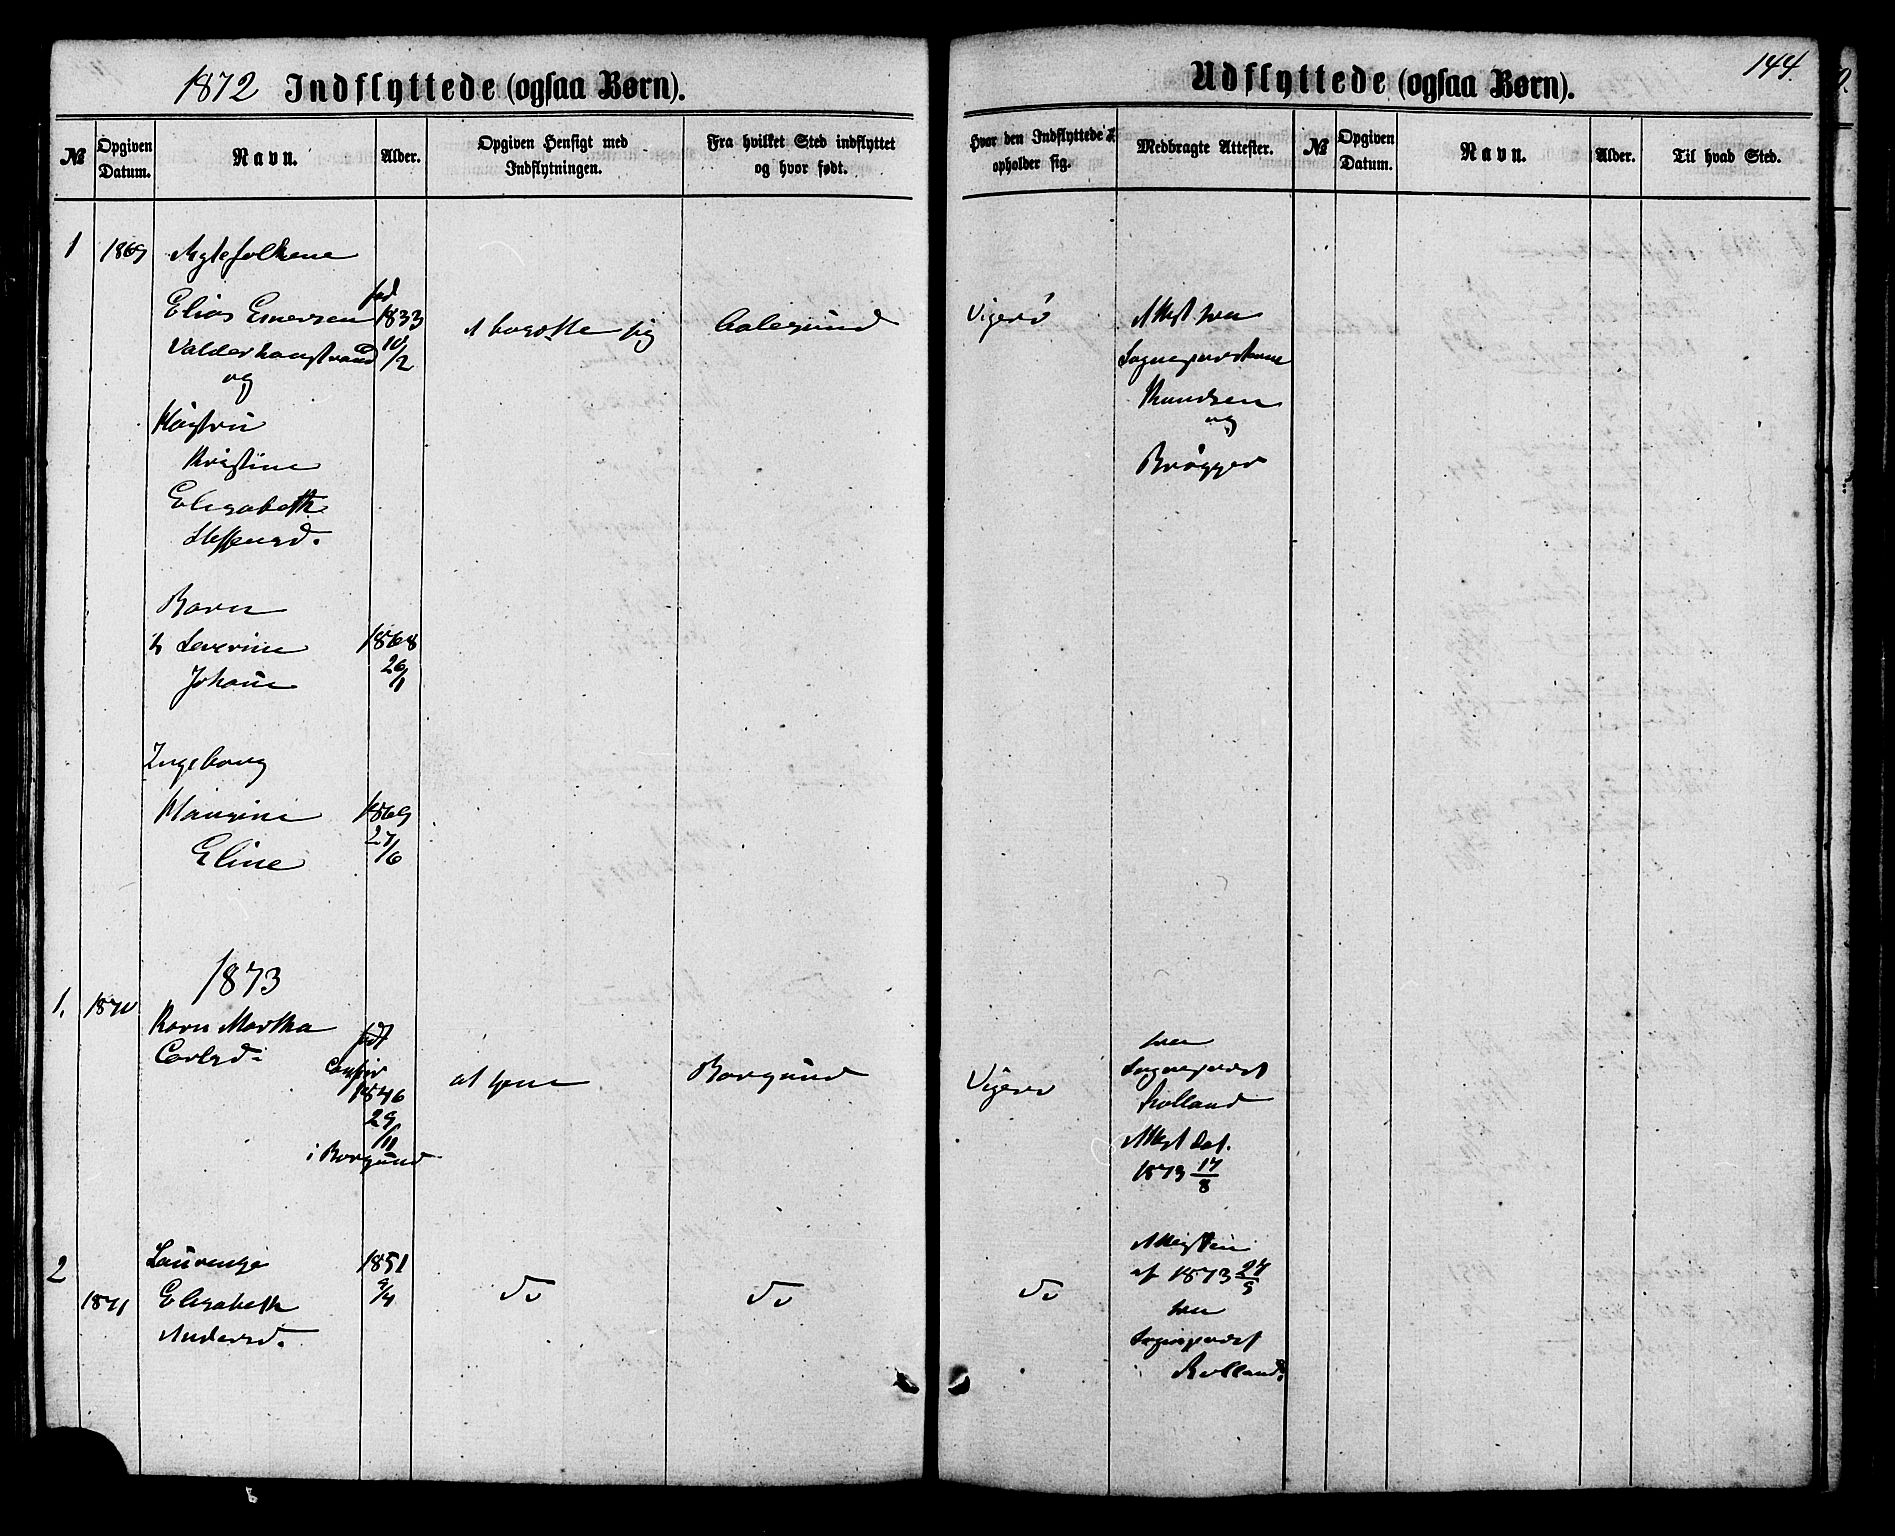 1872 Indflyttede (ogsaa Børn).
№
Opgiven Datum.
Navn.
Alder.
Opgiven Hensigt med Indflytningen.
Fra hvilket Sted indflyttet og hvor født.
Udflyttede (ogsaa Børn).
144.
Hvor den Indflyttede opholder sig.
Medbragte Attester.
№
Opgiven Datum.
Navn.
Alder.
Til hvad Sted.
1 1869 Ægtefolkene
Elias Enersen
Valderhaugstrand
og
Hustru
Kristine
Elisabeth
Steffensd.
fød
1833
10/2
At bosætte sig
Aalesund
Vigerø
Attest fra
Sognepræsterne
Knudsen
og
Brøgger
Børn
Severine
Johanne
1868
26/1
Ingeborg
Maurine
Eline
1869
27/6
1873
1. 1870
Karn Martha
Carlsd.
født
1846
29/11
i Borgund
at tjene
Borgund
Vigerø
fra
Sognepræst
Rolland
Attest dat.
1873 17/8
2
1871
Laurense
Elisabeth
Andersd.
1851
9/4
Do
Do
Do
Attesten
af 1873 27/9
fra
Sognepræst
Rolland.